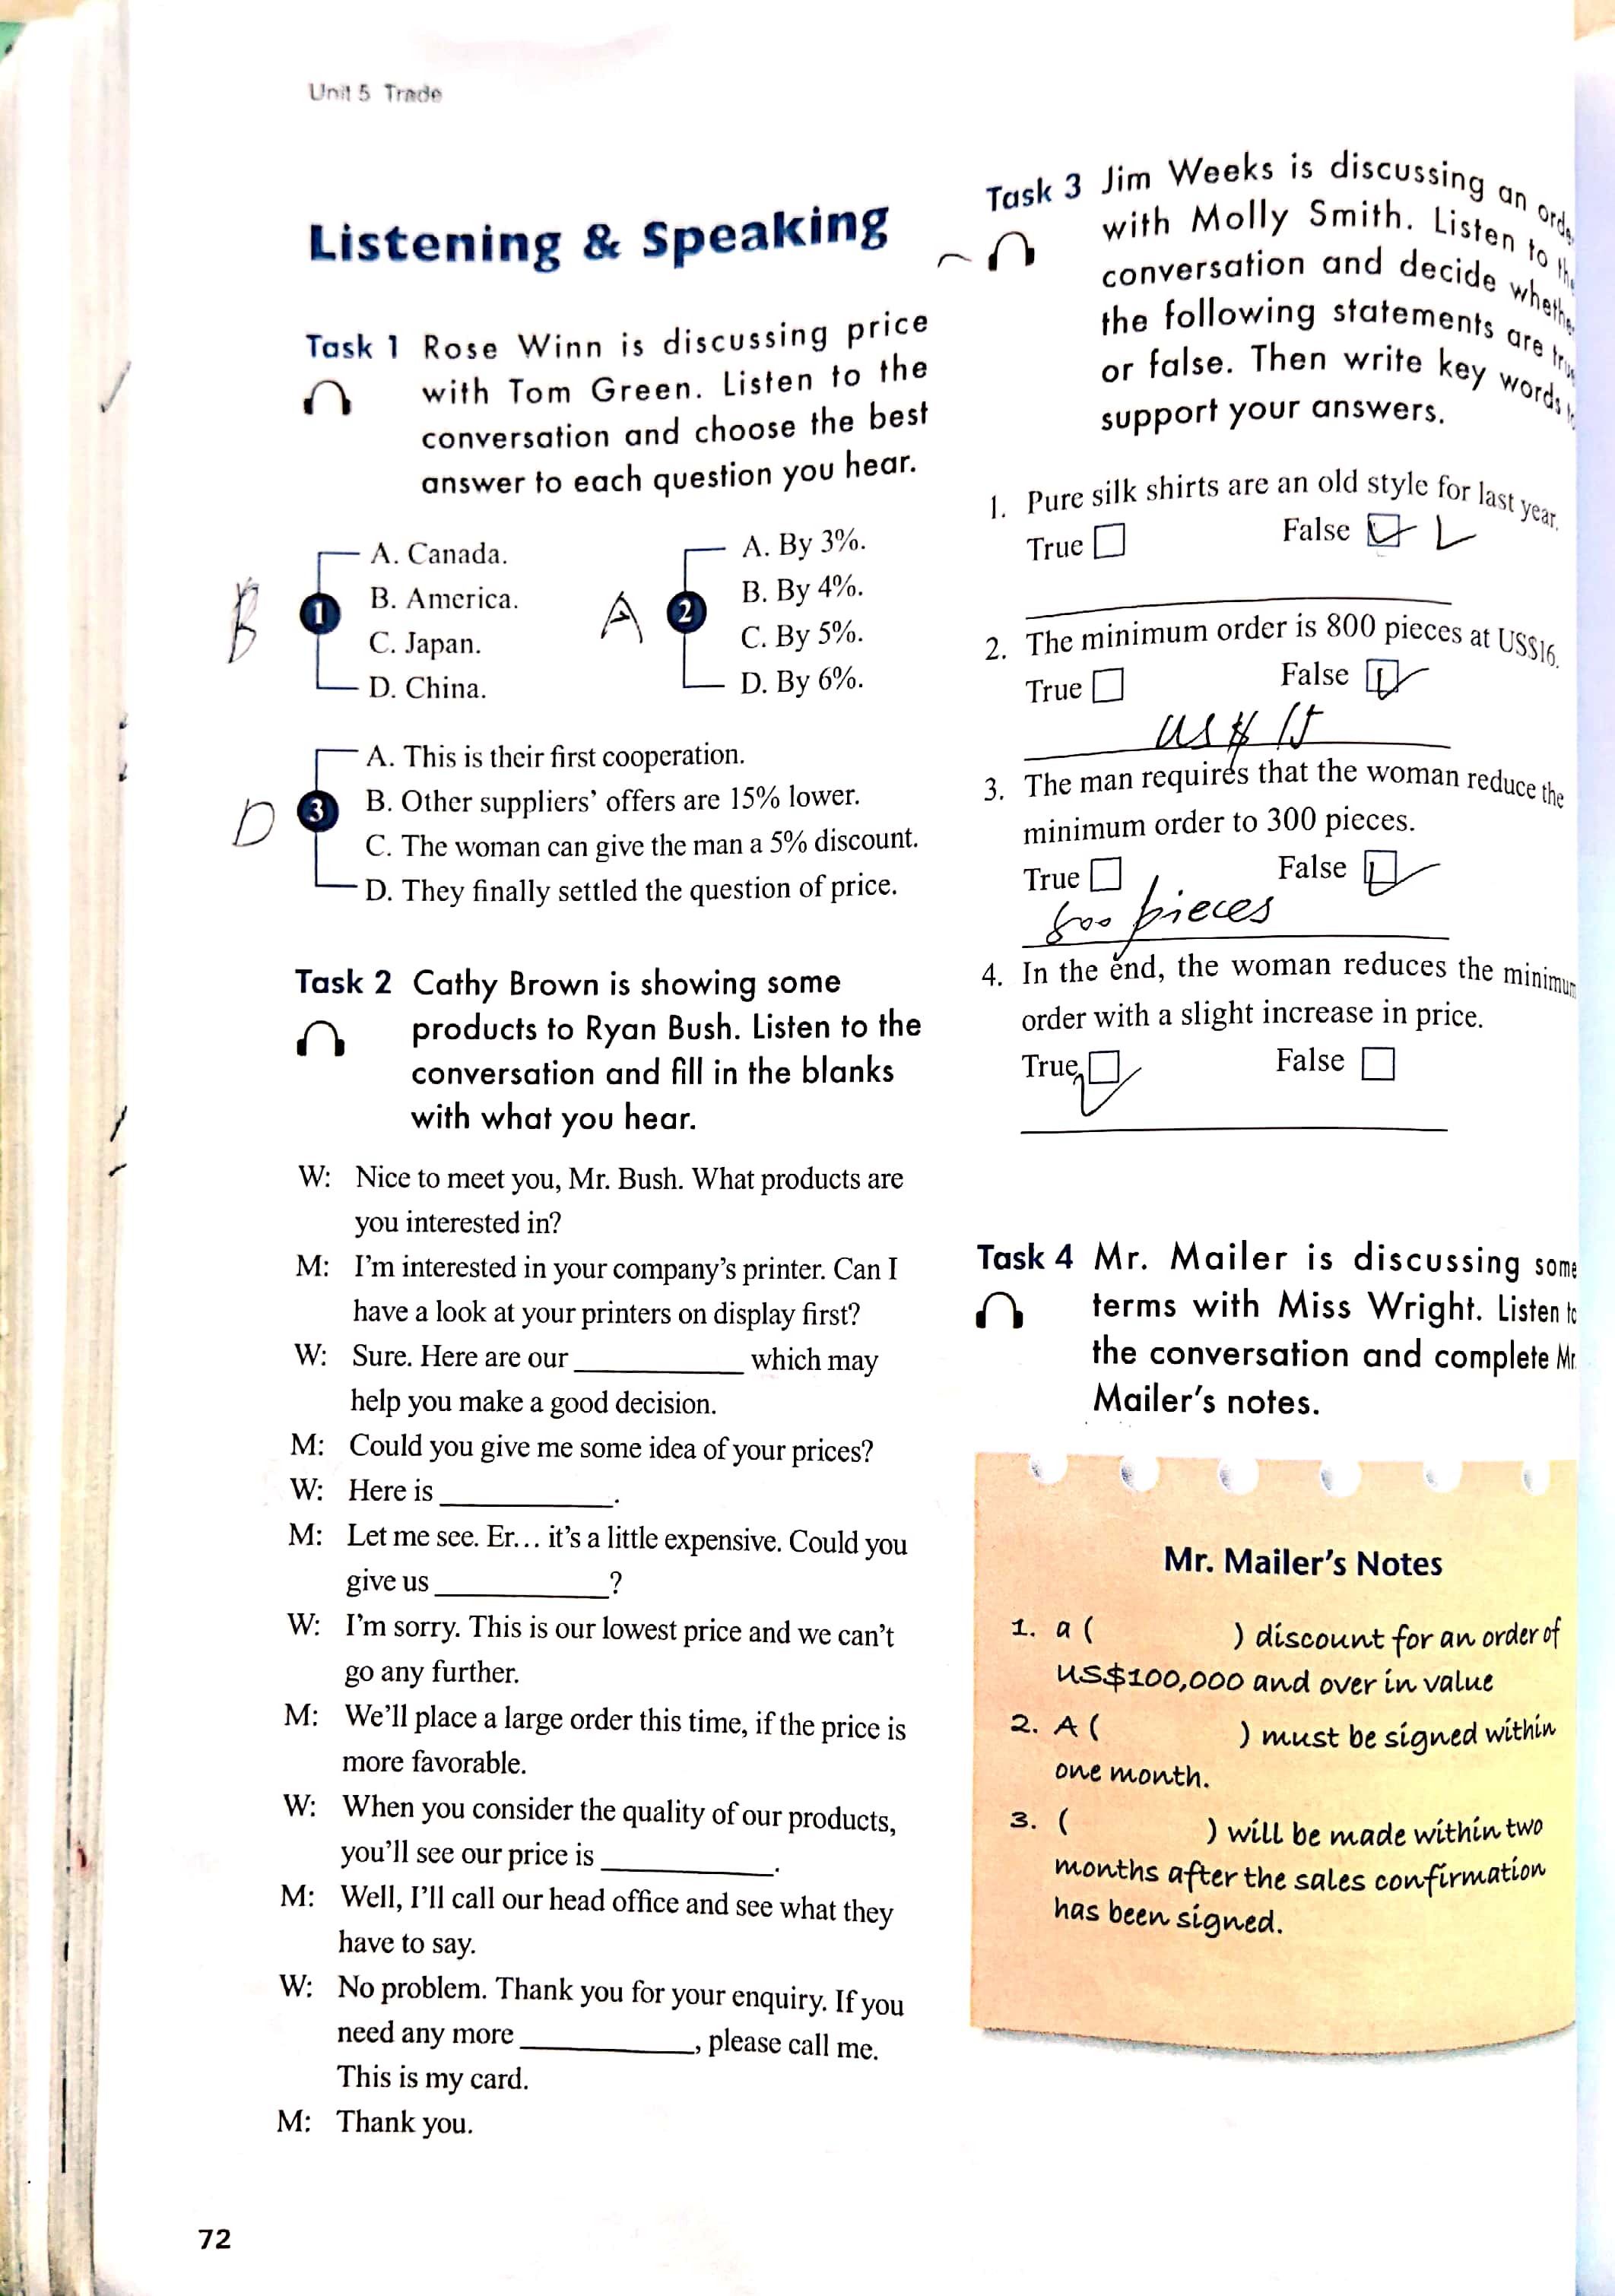 Unit 5 Trade
Listening & Speaking
Task 1 Rose Winn is discussing price
with Tom Green. Listen to the
conversation and choose the best
answer to each question you hear.
B
1
A. Canada.
B. America.
C. Japan.
D. China.
A
2
A. By 3%.
B. By 4%.
C. By 5%.
D. By 6%.
D
3
A. This is their first cooperation.
B. Other suppliers' offers are 15% lower.
C. The woman can give the man a 5% discount.
D. They finally settled the question of price.
Task 2 Cathy Brown is showing some
products to Ryan Bush. Listen to the
conversation and fill in the blanks
with what you hear.
W: Nice to meet you, Mr. Bush. What products are
you interested in?
M: I'm interested in your company's printer. Can I
have a look at your printers on display first?
W: Sure. Here are our ____________ which may
help you make a good decision.
M: Could you give me some idea of your prices?
W: Here is ____________.
M: Let me see. Er... it's a little expensive. Could you
give us ____________?
W: I'm sorry. This is our lowest price and we can't
go any further.
M: We'll place a large order this time, if the price is
more favorable.
W: When you consider the quality of our products,
you'll see our price is ____________.
M: Well, I'll call our head office and see what they
have to say.
W: No problem. Thank you for your enquiry. If you
need any more ____________, please call me.
This is my card.
M: Thank you.
72
Task 3 Jim Weeks is discussing an
with Molly Smith. Listen to
conversation and decide
the following statements are
or false. Then write key words
support your answers.
1. Pure silk shirts are an old style for last year.
True False
2. The minimum order is 800 pieces at US$16.
True False
US$ 15
3. The man requires that the woman reduce the
minimum order to 300 pieces.
True False
pieces
4. In the end, the woman reduces the
order with a slight increase in price.
True False
Task 4 Mr. Mailer is discussing some
terms with Miss Wright. Listen to
the conversation and complete Mr.
Mailer's notes.
Mr. Mailer's Notes
1. a ( ) discount for an order of
US$100,000 and over in value
2. A ( ) must be signed within
one month.
3. ( ) will be made within two
months after the sales confirmation
has been signed.